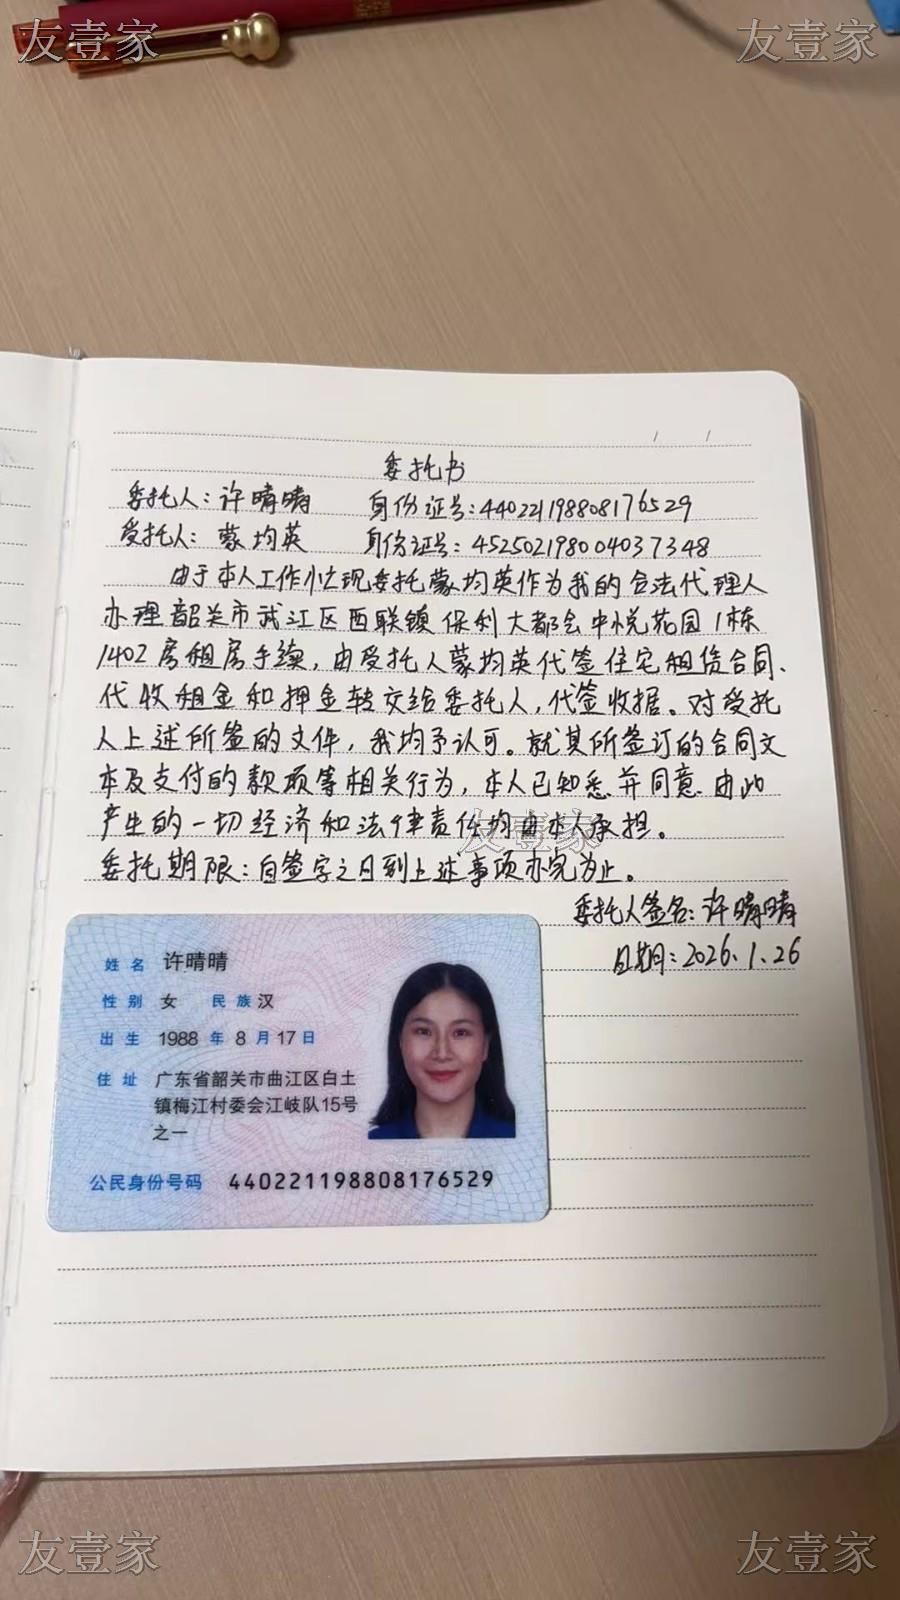 友壹家
友壹家
委托书
委托人：许晴晴 身份证号：440221198808176529
受托人：蒙均英 身份证号：452502198004037348
由于本人工作忙现委托蒙均英作为我的合法代理人
办理韶关市武江区西联镇保利大都会中悦花园1栋
1402房租房手续，由受托人蒙均英代签住宅租赁合同、
代收租金和押金转交给委托人，代签收据。对受托
人上述所签的文件，我均予认可。就其所签订的合同文
本及支付的款项等相关行为，本人已知悉并同意.由此
产生的一切经济和法律责任均由本人承担。
友壹家
委托期限：自签字之日到上述事项办完为止。
委托人签名：许晴晴
日期：2026.1.26
姓名 许晴晴
性别 女 民族 汉
出生 1988 年 8 月 17 日
住址 广东省韶关市曲江区白土
镇梅江村委会江岐队15号
之一
公民身份号码 440221198808176529
友壹家
友壹家